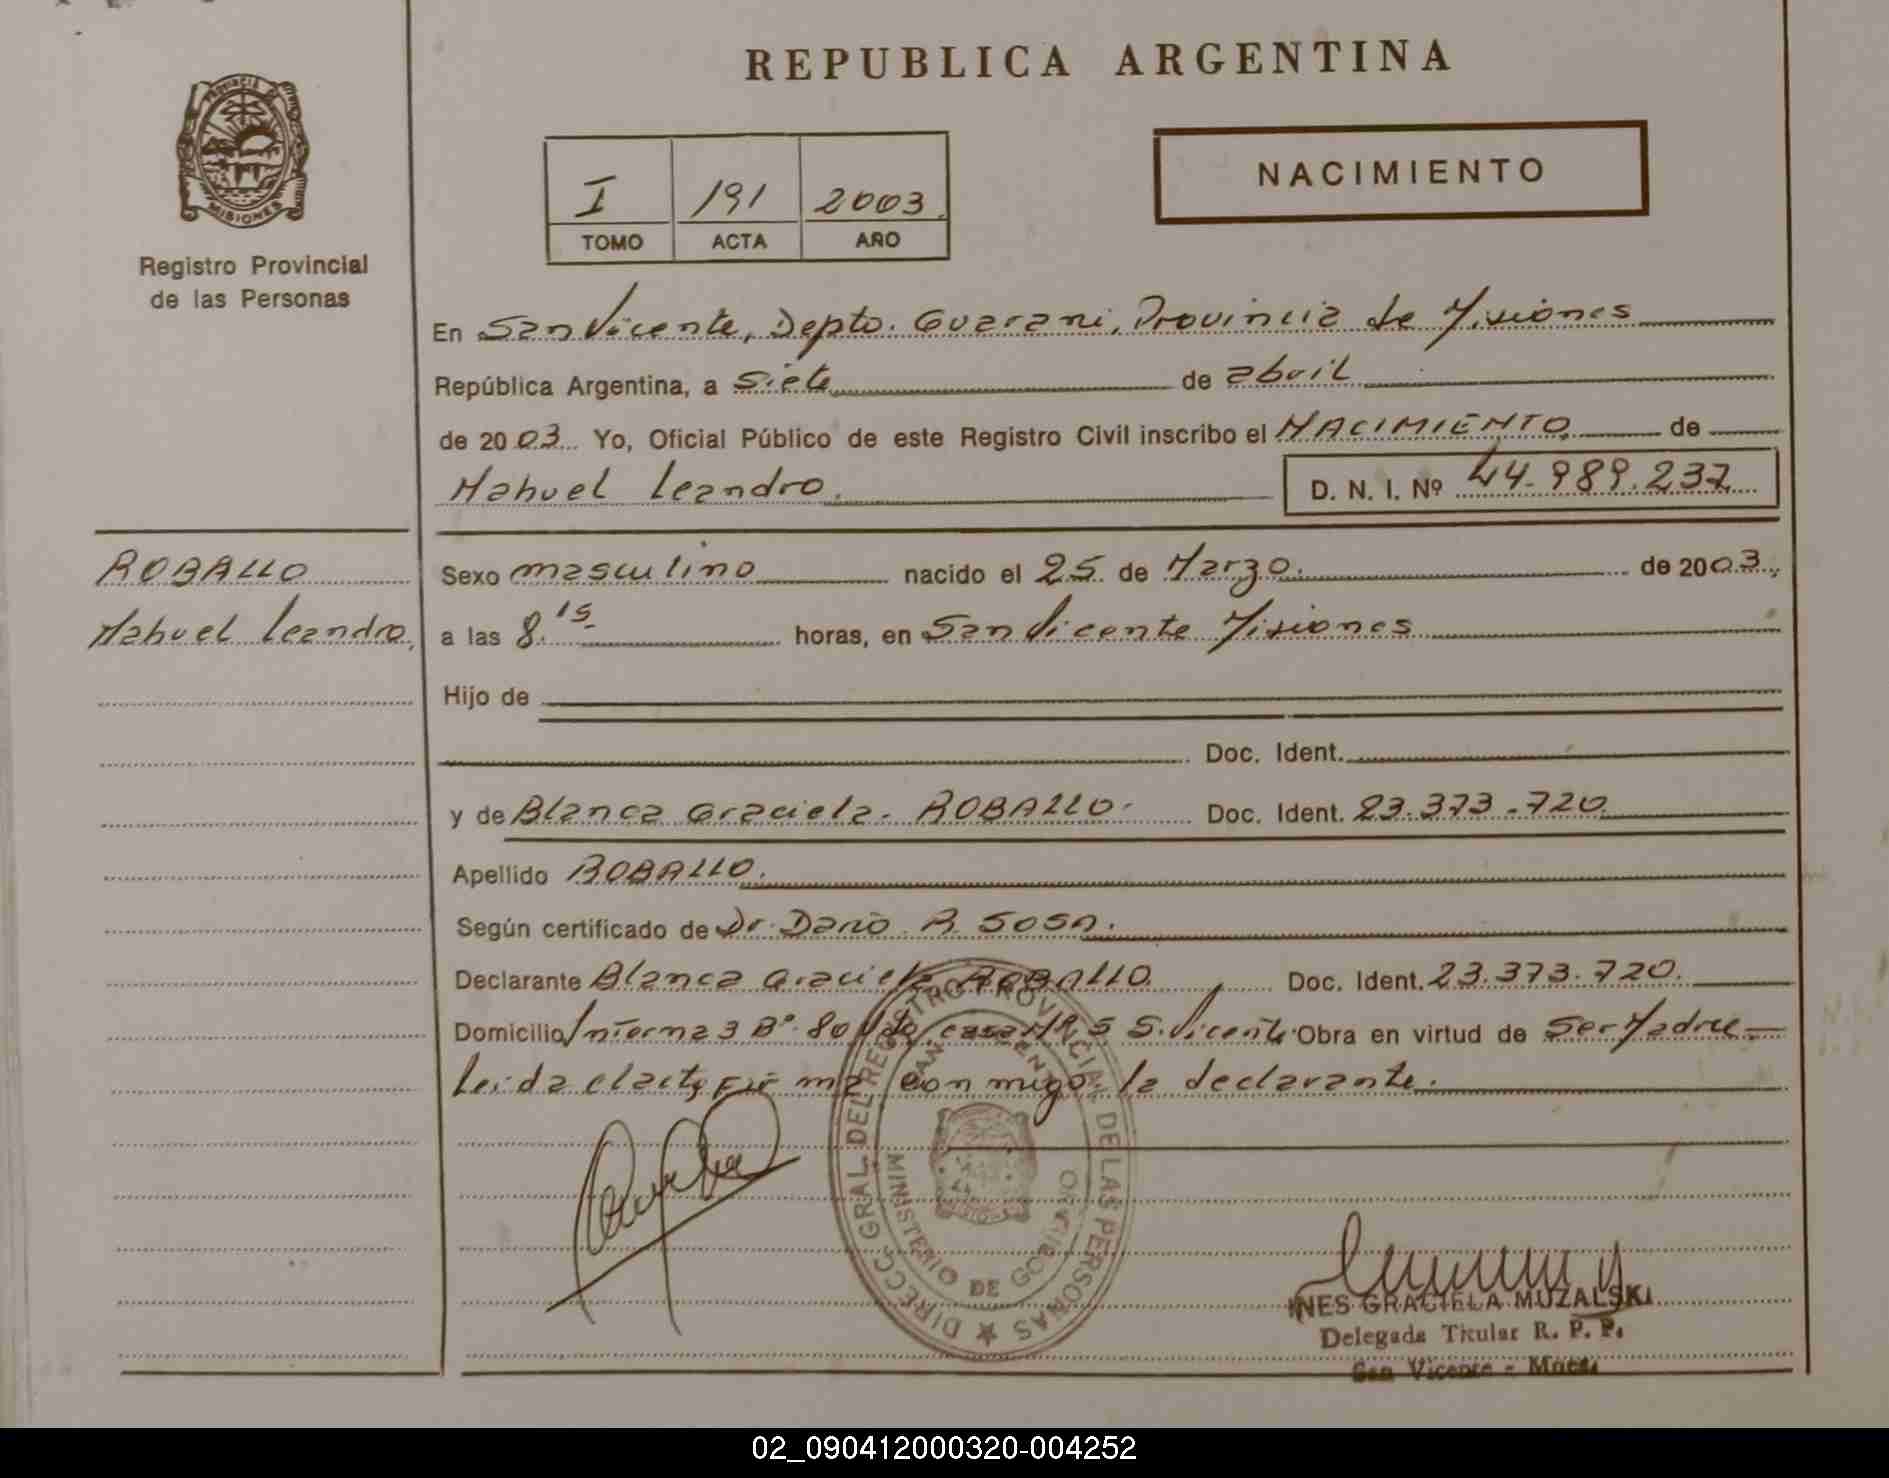 REPUBLICA ARGENTINA
PROVINCIA DE
MISIONES
Registro Provincial
de las Personas
I 191 2003
TOMO ACTA AÑO
NACIMIENTO
En San Vicente, Depto. Guarani, Provincia de Misiones
República Argentina, a Siete de abril
de 2003 Yo, Oficial Público de este Registro Civil inscribo el NACIMIENTO de
Nahuel Leandro. D. N. I. Nº 44.989.237
ROBALLO
Nahuel Leandro,
Sexo masculino nacido el 25 de Marzo. de 2003,
a las 8.15 horas, en San Vicente Misiones
Hijo de
Doc. Ident.
y de Blanca Graciela. ROBALLO. Doc. Ident. 23.373.720
Apellido ROBALLO.
Según certificado de Dr. Dario R. SOSA.
Declarante Blanca Graciela ROBALLO. Doc. Ident. 23.373.720.
Domicilio Interna 3 Bº 80 casa Nº 5 S. Vicente Obra en virtud de Ser Madre
Leida el acta firma conmigo la declarante.
DIRECC. GRAL. DEL REGISTRO PROVINCIAL DE LAS PERSONAS
MINISTERIO DE GOBIERNO
INES GRACIELA MUZALSKI
Delegada Titular R. P. P.
San Vicente - Mnes.
02_090412000320-004252